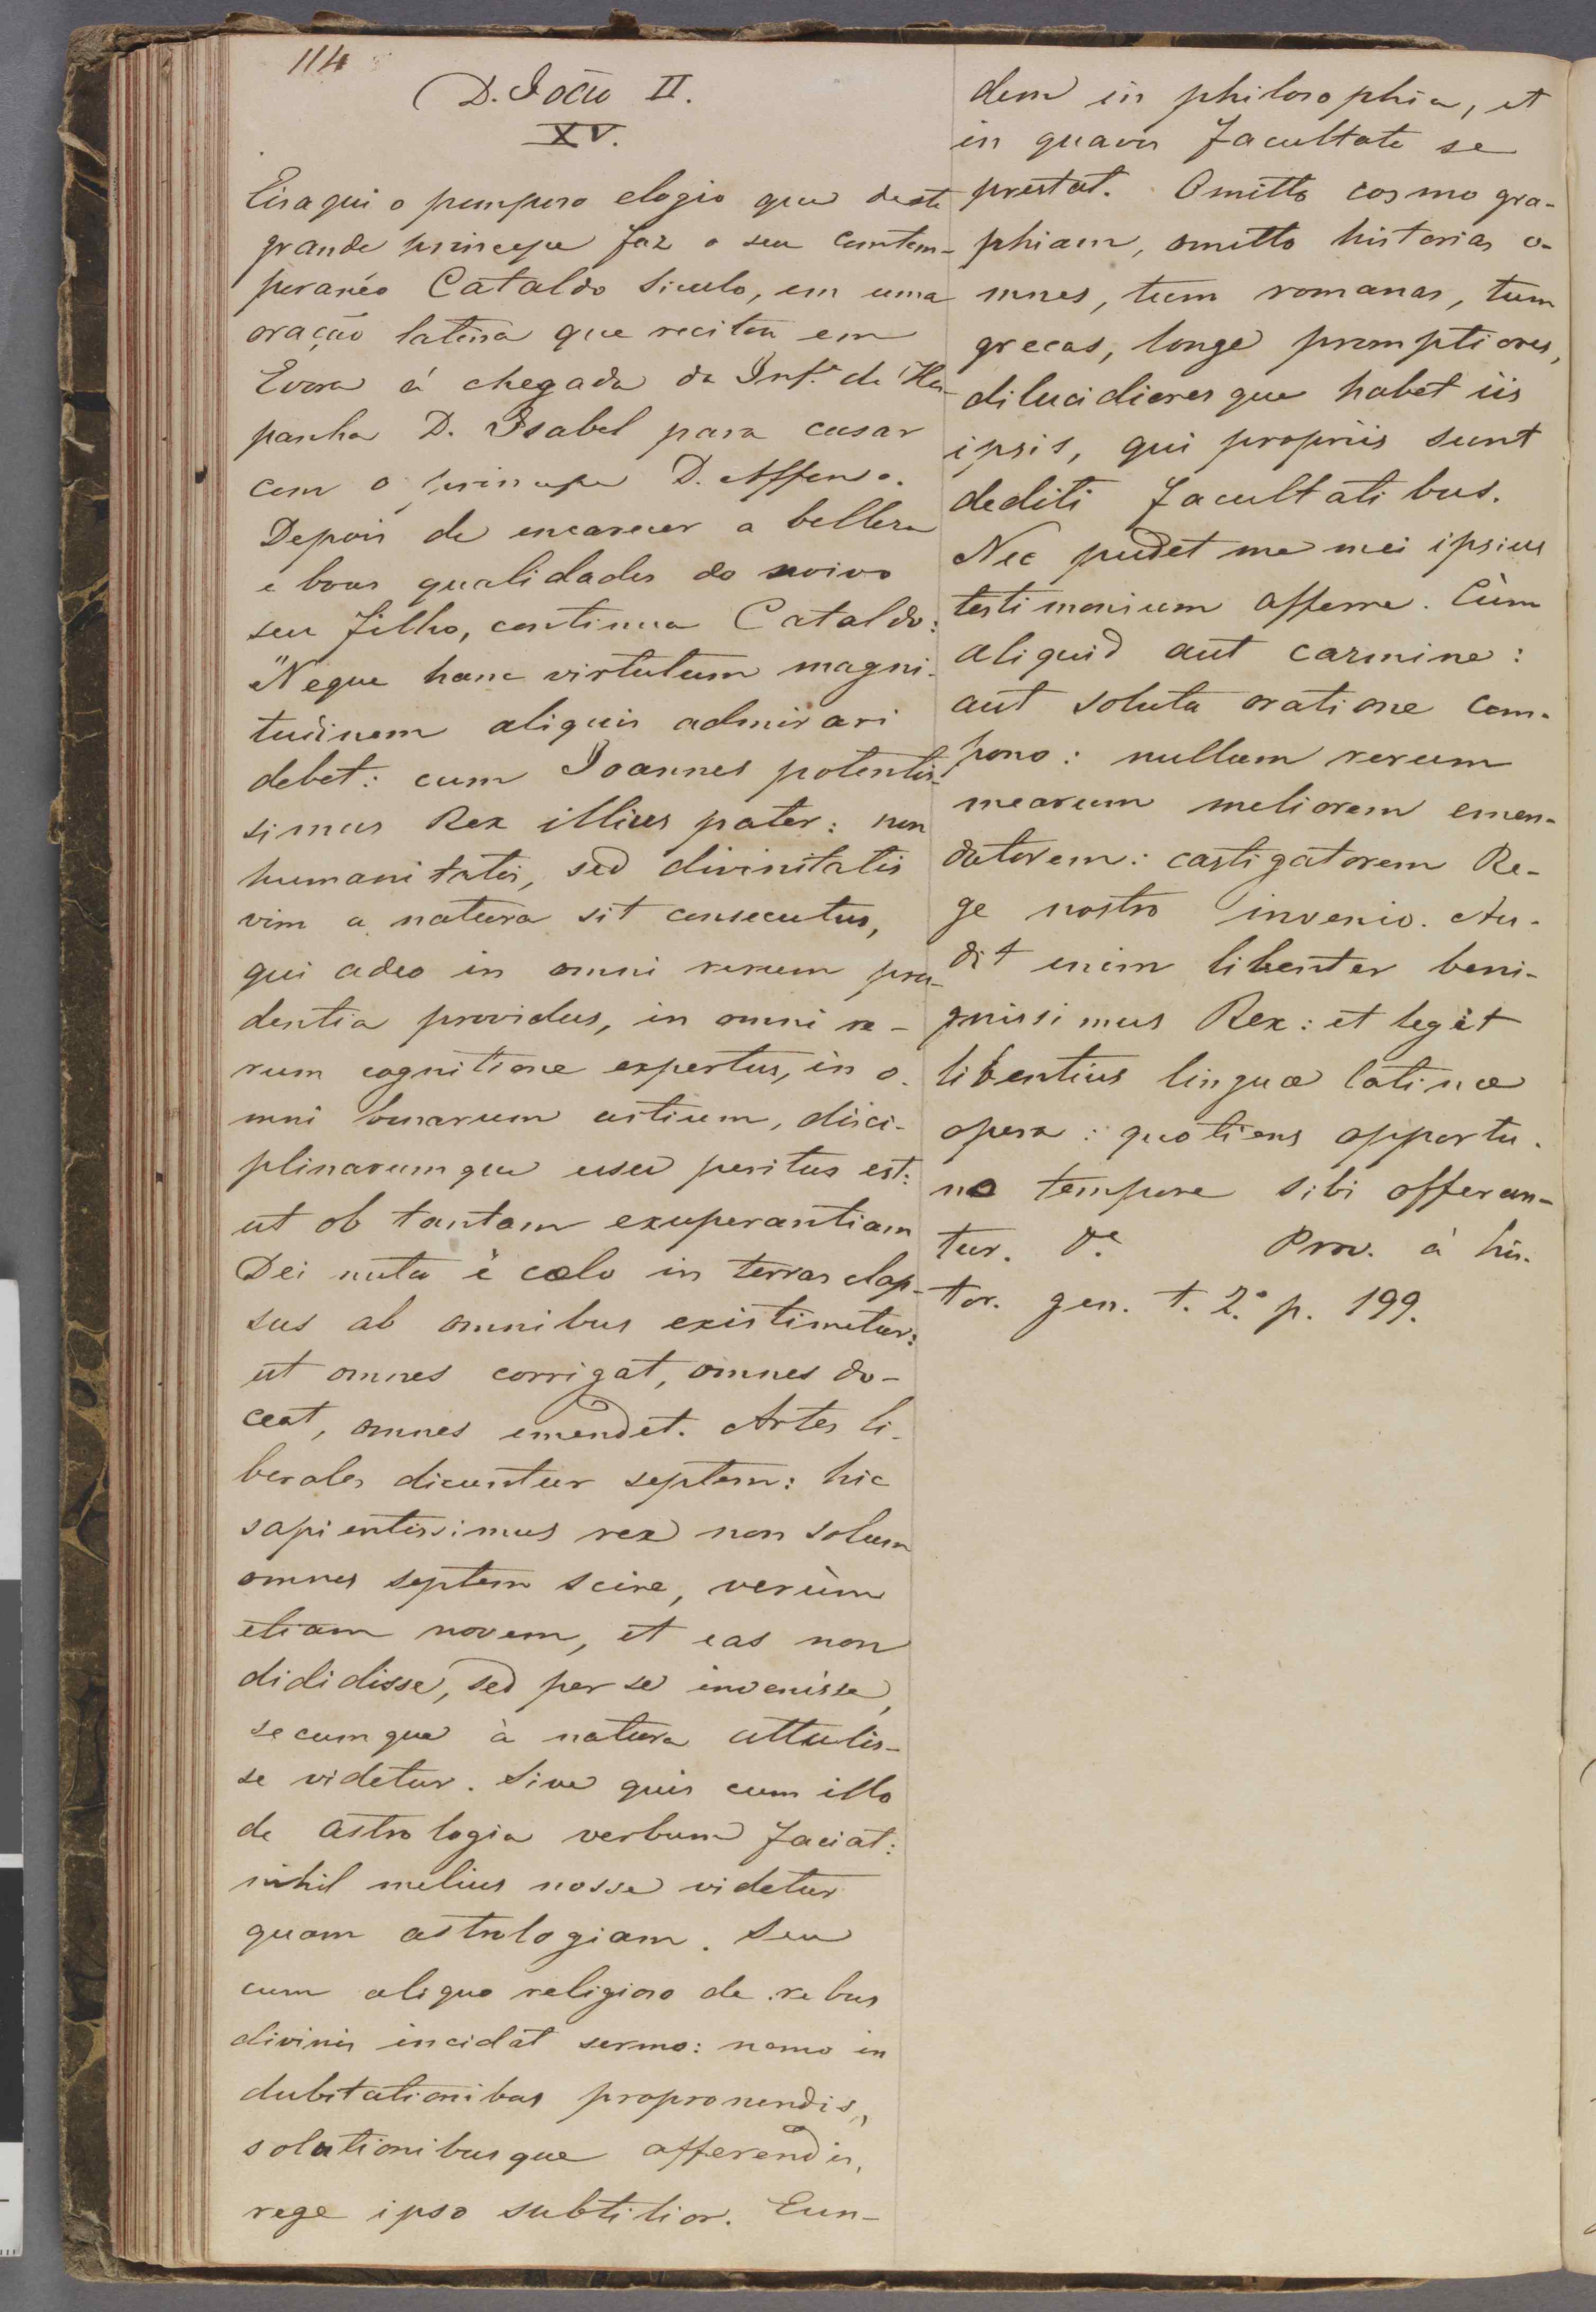 114
D. João II.
XV.
Eisaqui o pomposo elogio que deste
grande principe faz o seu contem-
poranéo Cataldo Siculo, em uma
oração latina que recitou em
Evora á chegada da Inf.ª de Hes-
panha D. Isabel para casar
com o principe D. Affonso.
Depois de encarecer a belleza
e boas qualidades do noivo
seu filho, continua Cataldo:
"Neque hanc virtutum magni-
tudinem aliquis admirari
debet: cum Joannes potentis-
simus Rex illius pater: non
humanitatis, sed divinitatis
vim a natura sit consecutus,
qui adeo in omni rerum pru-
dentia providus, in omni re-
rum cognitione expertus, in o-
mni bonarum artium, disci-
plinarumque usu peritus est:
ut ob tantam exuperantiam
Dei nutu è cœlo in terras elap-
sus ab omnibus existimetur:
ut omnes corrigat, omnes do-
ceat, omnes emendet. Artes li-
berales dicuntur septem: hic
sapientissimus rex non solum
omnes septem scire, verùm
etiam novem, et eas non
dididisse, sed per se invenisse,
secumque à natura attulis-
se videtur. Sive quis cum illo
de astrologia verbum faciat:
nihil melius nosse videtur
quam astrologiam. Seu
cum aliquo religioso de rebus
divinis incidat sermo: nemo in
dubitationibus propronendis,
solutionibusque afferendis,
rege ipso subtilior. Eun-
dem in philosophia, et
in quavis facultate se
prestat. Omitto cosmogra-
phiam, omitto historias o-
mnes, tum romanas, tum
grecas, longe promptiores,
dilucidioresque habet iis
ipsis, qui propriis sunt
dediti facultatibus.
Nec pudet me mei ipsius
testimonium afferre. Cùm
aliquid aut carmine:
aut soluta oratione com-
pono: nullum rerum
mearum meliorem emen-
datorem: castigatorem Re-
ge nostro invenio. Au-
dit enim libenter beni-
gnissimus Rex: et legit
libentius linguæ latinæ
opera: quotiens opportu-
no tempore sibi offerun-
tur. Prov. à his-
tor. gen. t. 2.º p. 199.